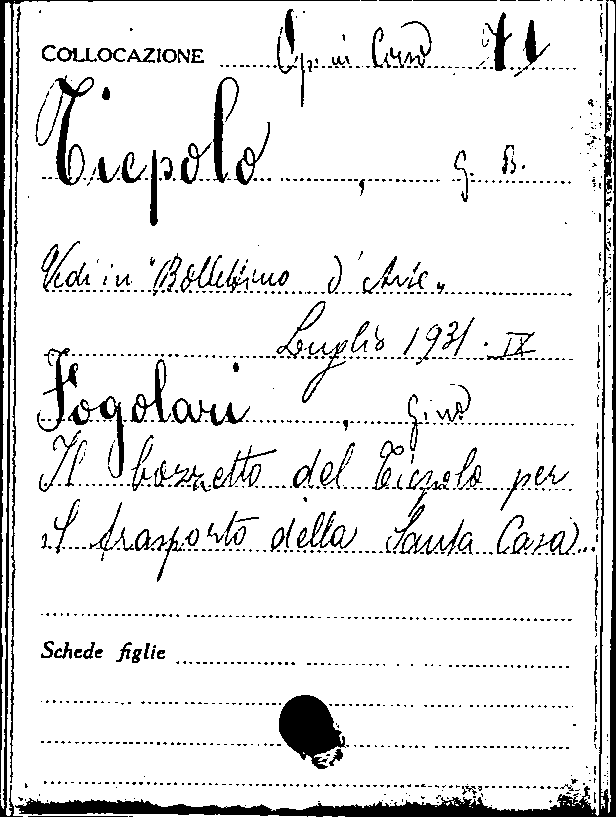 COLLOCAZIONE Op. in Corso 71
Tiepolo, G. B.
Vedi in "Bollettino d'Arte"
Luglio 1931. IX
Fogolari, Gino
Il bozzetto del Tiepolo per
il trasporto della Santa Casa
Schede figlie